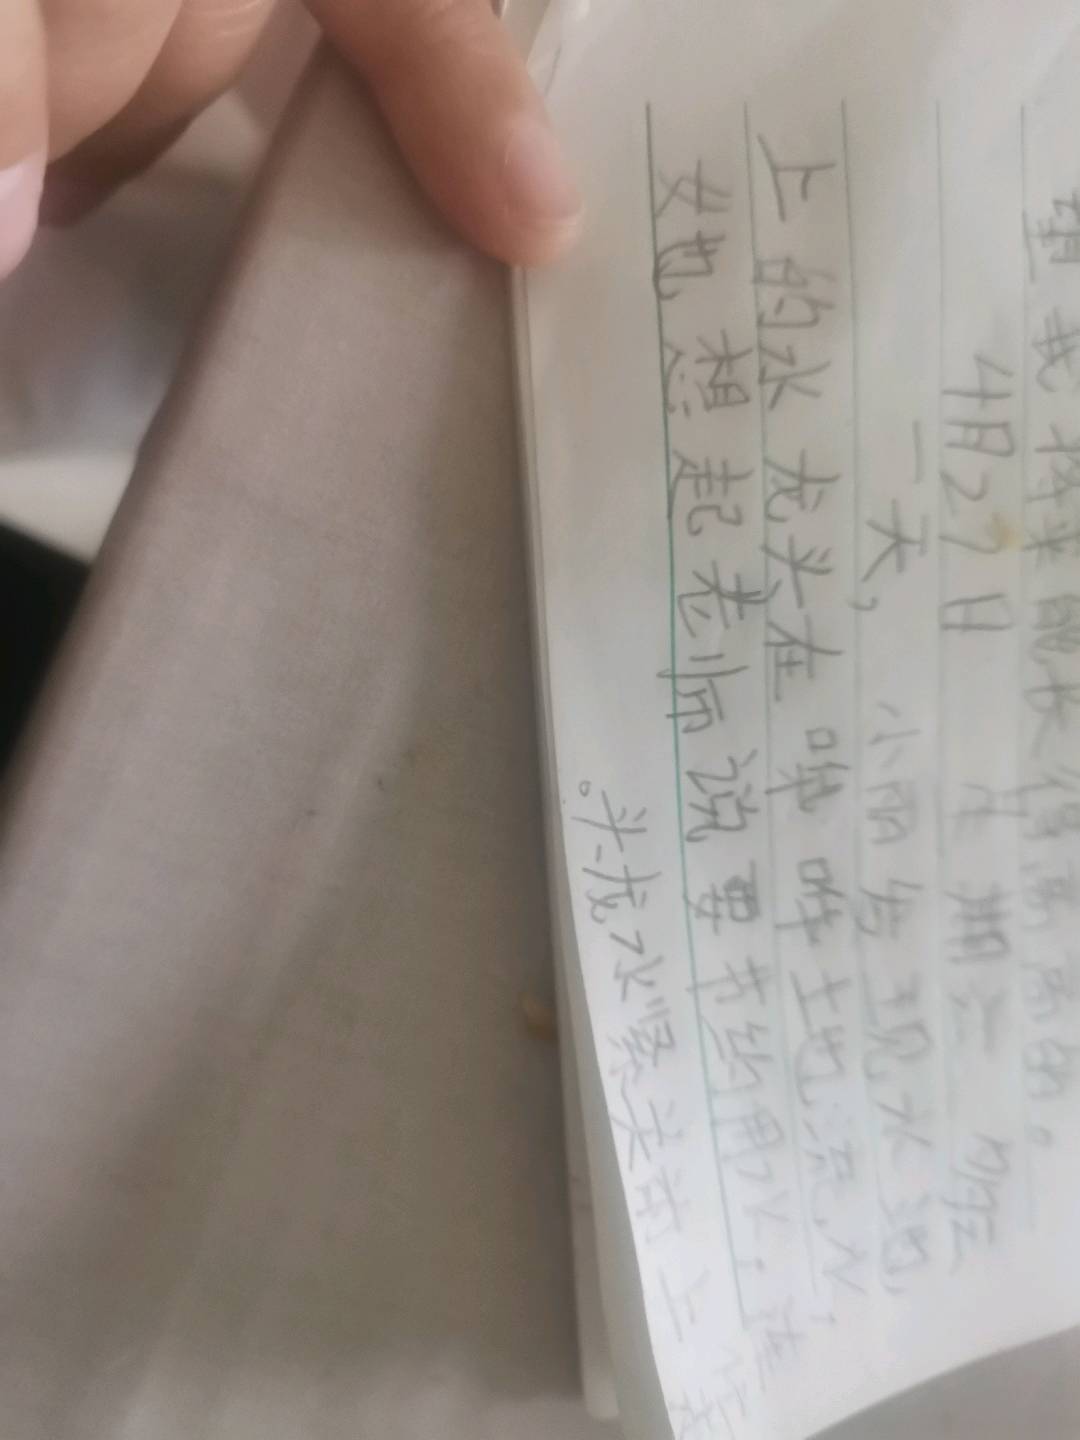 望我将来能长得高高的。
4月27日 星期三
一天,小丽发现水池
上的水龙头在哗哗地流水,
她想起老师说要节约用水,连
忙上前关紧水龙头。